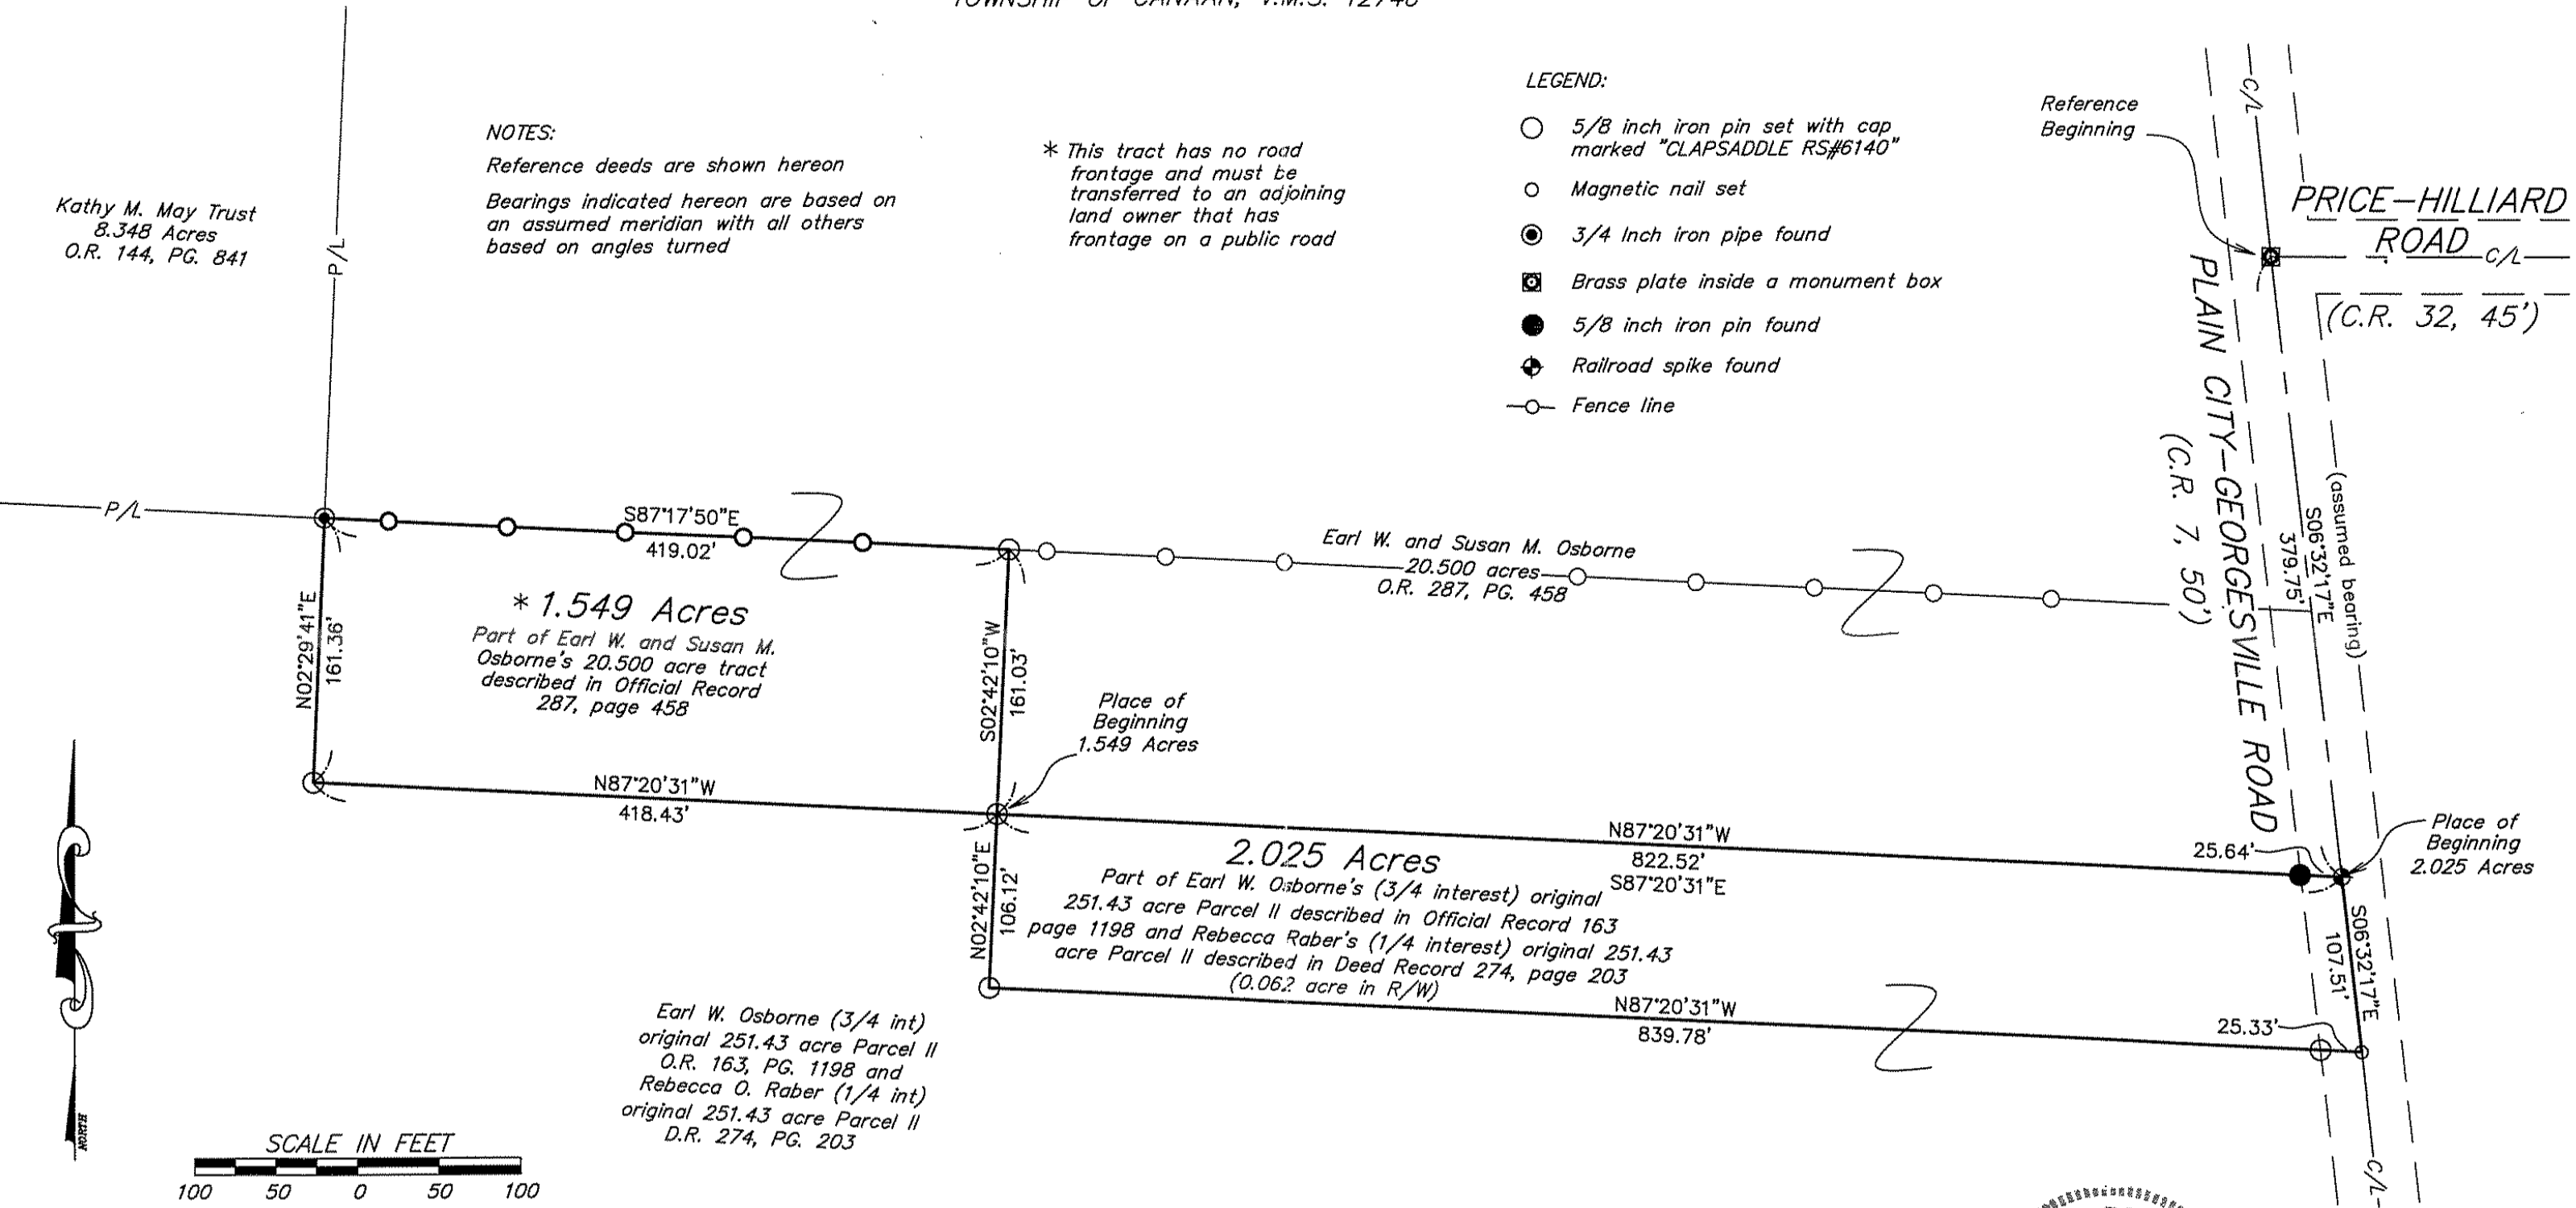 TOWNSHIP OF CANAAN, V.M.S. 12748
NOTES:
Reference deeds are shown hereon
Bearings indicated hereon are based on
an assumed meridian with all others
based on angles turned
* This tract has no road
frontage and must be
transferred to an adjoining
land owner that has
frontage on a public road
LEGEND:
5/8 inch iron pin set with cap
marked "CLAPSADDLE RS#6140"
Magnetic nail set
3/4 Inch iron pipe found
Brass plate inside a monument box
5/8 inch iron pin found
Railroad spike found
Fence line
Reference
Beginning
C/L
PRICE-HILLIARD
ROAD
C/L
(C.R. 32, 45')
PLAIN CITY-GEORGESVILLE ROAD
(C.R. 7, 50')
(assumed bearing)
S06°32'17"E
379.75'
Kathy M. May Trust
8.348 Acres
O.R. 144, PG. 841
P/L
P/L
S87°17'50"E
419.02'
Earl W. and Susan M. Osborne
20.500 acres
O.R. 287, PG. 458
N02°29'41"E
161.36'
* 1.549 Acres
Part of Earl W. and Susan M.
Osborne's 20.500 acre tract
described in Official Record
287, page 458
S02°42'10"W
161.03'
Place of
Beginning
1.549 Acres
N87°20'31"W
418.43'
N87°20'31"W
822.52'
S87°20'31"E
25.64'
Place of
Beginning
2.025 Acres
N02°42'10"E
106.12'
2.025 Acres
Part of Earl W. Osborne's (3/4 interest) original
251.43 acre Parcel II described in Official Record 163
page 1198 and Rebecca Raber's (1/4 interest) original 251.43
acre Parcel II described in Deed Record 274, page 203
(0.062 acre in R/W)
S06°32'17"E
107.51'
N87°20'31"W
839.78'
25.33'
Earl W. Osborne (3/4 int)
original 251.43 acre Parcel II
O.R. 163, PG. 1198 and
Rebecca O. Raber (1/4 int)
original 251.43 acre Parcel II
D.R. 274, PG. 203
NORTH
SCALE IN FEET
100 50 0 50 100
C/L